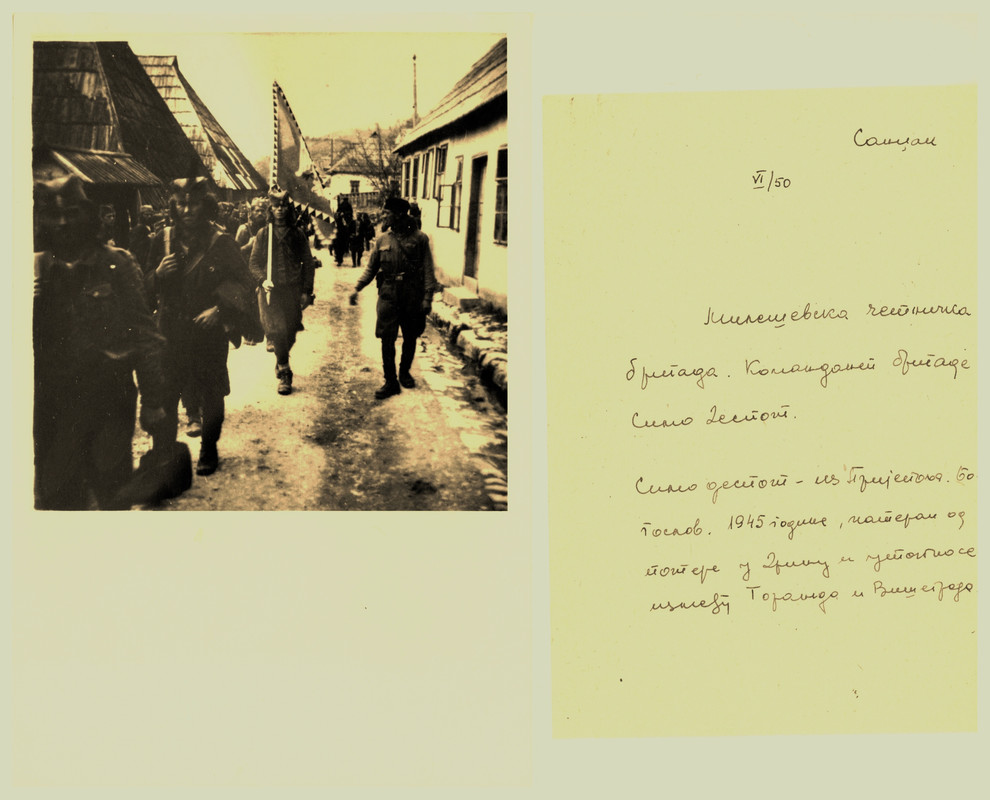 Санџак
VI/50
Милешевска четничка
бригада. Командант бригаде
Симо Деспот.
Симо деспот - из Пријепоља. Бо
гослов. 1945 године, натеран од
потере у Дрину и утопио се
између Горажда и Вишеграда